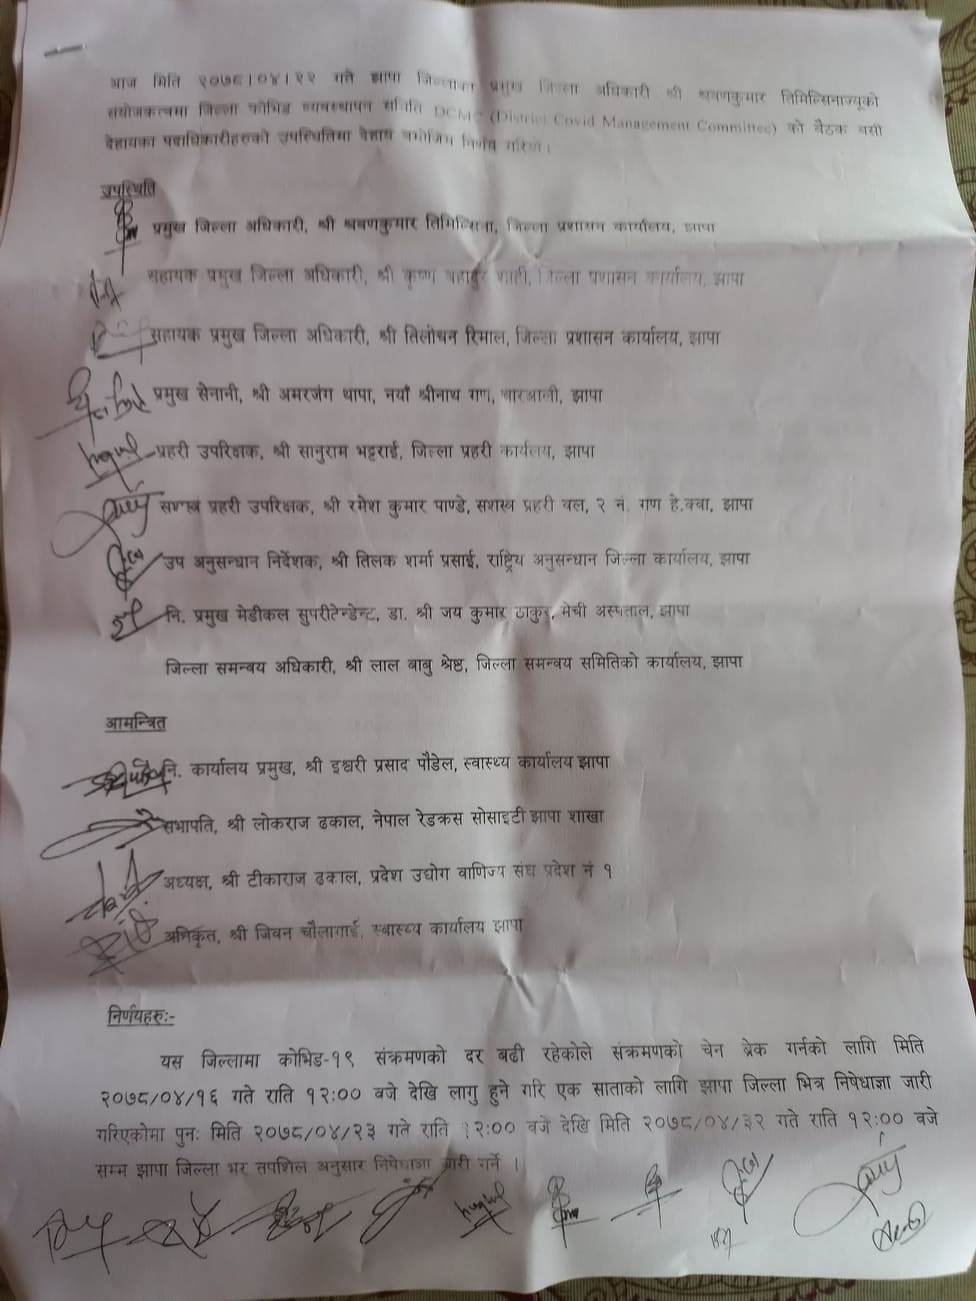 आज मिति २०७८।०४।२२ गते झापा जिल्लाका प्रमुख जिल्ला अधिकारी श्री श्रवणकुमार तिमिल्सिनाज्यूको
संयोजकत्वमा जिल्ला कोभिड व्यवस्थापन समिति DCMC (District Covid Management Committee) को बैठक बसी
देहायका पदाधिकारीहरुको उपस्थितिमा देहाय बमोजिम निर्णय गरियो।
उपस्थिति
प्रमुख जिल्ला अधिकारी, श्री श्रवणकुमार तिमिल्सिना, जिल्ला प्रशासन कार्यालय, झापा
सहायक प्रमुख जिल्ला अधिकारी, श्री कृष्ण बहादुर शाही, जिल्ला प्रशासन कार्यालय, झापा
सहायक प्रमुख जिल्ला अधिकारी, श्री तिलोचन रिमाल, जिल्ला प्रशासन कार्यालय, झापा
प्रमुख सेनानी, श्री अमरजंग थापा, नयाँ श्रीनाथ गण, चारआली, झापा
प्रहरी उपरिक्षक, श्री सानुराम भट्टराई, जिल्ला प्रहरी कार्यलय, झापा
सशस्त्र प्रहरी उपरिक्षक, श्री रमेश कुमार पाण्डे, सशस्त्र प्रहरी वल, २ नं. गण हे.क्वा, झापा
उप अनुसन्धान निर्देशक, श्री तिलक शर्मा प्रसाई, राष्ट्रिय अनुसन्धान जिल्ला कार्यालय, झापा
नि. प्रमुख मेडीकल सुपरीटेन्डेन्ट, डा. श्री जय कुमार ठाकुर, मेची अस्पताल, झापा
जिल्ला समन्वय अधिकारी, श्री लाल बाबु श्रेष्ठ, जिल्ला समन्वय समितिको कार्यालय, झापा
आमन्त्रित
नि. कार्यालय प्रमुख, श्री इश्वरी प्रसाद पौडेल, स्वास्थ्य कार्यालय झापा
सभापति, श्री लोकराज ढकाल, नेपाल रेडक्रस सोसाइटी झापा शाखा
अध्यक्ष, श्री टीकाराज ढकाल, प्रदेश उद्योग वाणिज्य संघ प्रदेश नं १
अधिकृत, श्री जिवन चौलागाई, स्वास्थ्य कार्यालय झापा
निर्णयहरुः-
यस जिल्लामा कोभिड-१९ संक्रमणको दर बढी रहेकोले संक्रमणको चेन ब्रेक गर्नको लागि मिति
२०७८/०४/१६ गते राति १२:०० बजे देखि लागु हुने गरि एक साताको लागि झापा जिल्ला भित्र निषेधाज्ञा जारी
गरिएकोमा पुनः मिति २०७८/०४/२३ गते राति १२:०० बजे देखि मिति २०७८/०४/३२ गते राति १२:०० बजे
सम्म झापा जिल्ला भर तपशिल अनुसार निषेधाज्ञा जारी गर्ने ।